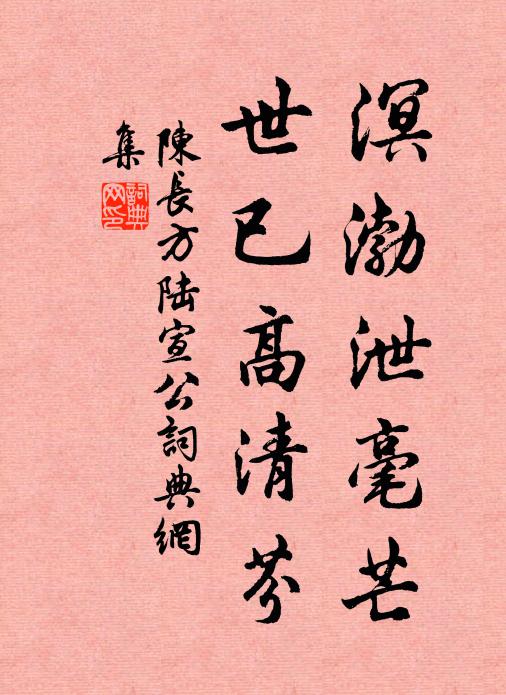 溟渤泄毫芒
世已高清芬
陳長方陸宣公詞典網
集
詞典
网印